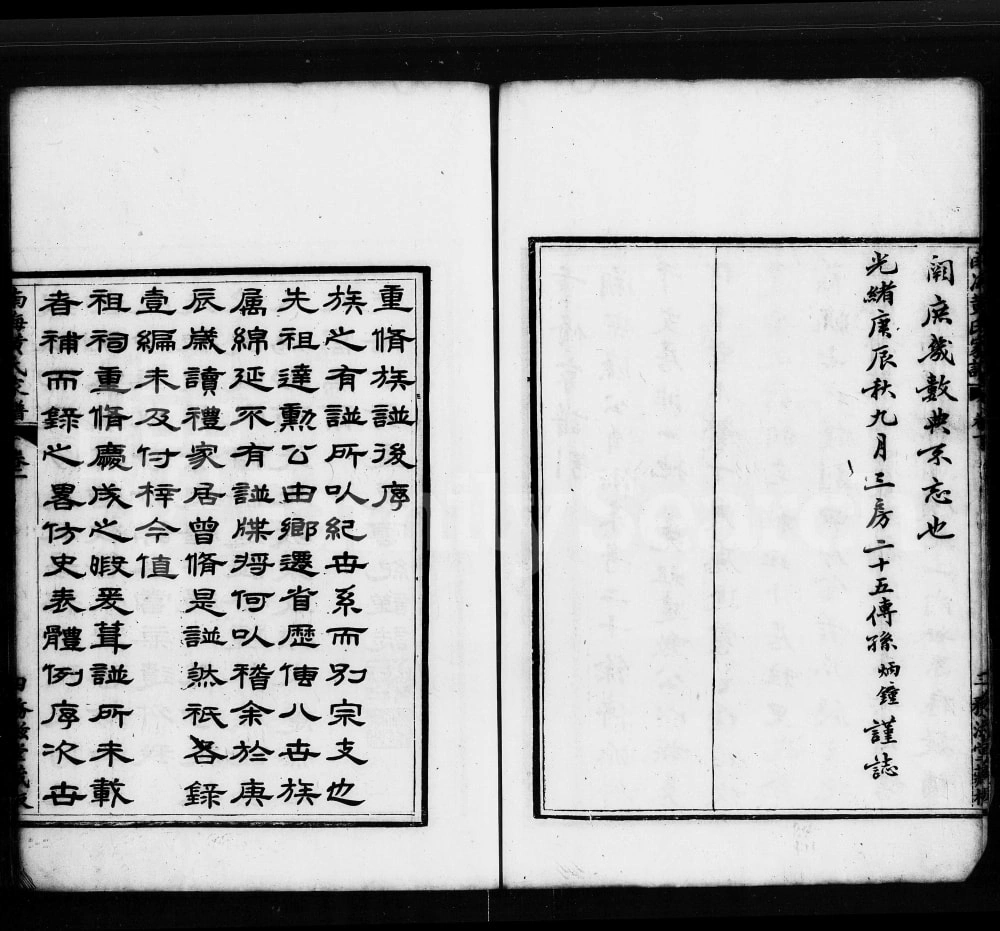 闕庶幾數典不忘也
光緒庚辰秋九月三房二十五傳孫炳錘謹誌
重脩族譜後序
族之有譜所以紀世系而別宗支也
先祖達勳公由鄉遷省歷傳八世族
屬綿延不有譜牒將何以稽余於庚
辰歲讀禮家居曾脩是譜然祇各錄
壹編未及付梓今值
祖祠重脩慶成之暇爰葺譜所未載
者補而錄之畧仿史表體例序次世
南海黃氏家譜